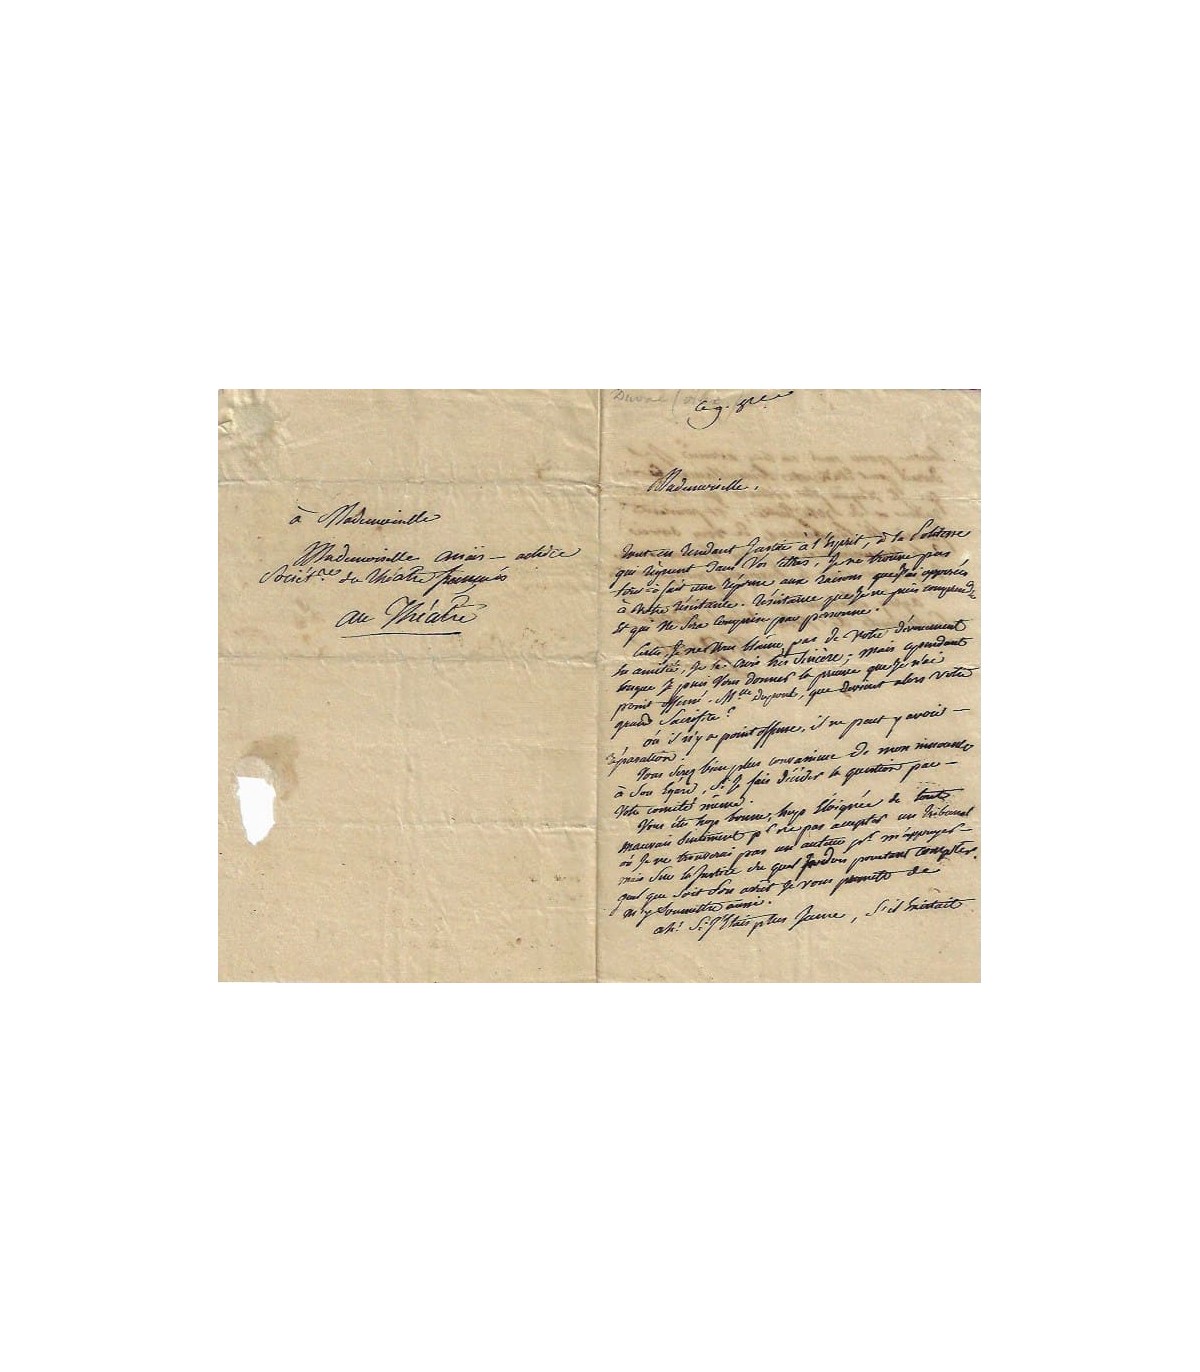 à Mademoiselle
Mademoiselle anaïs - actrice
Sociét.res du théâtre français
au Théatre
Duval
ce 9. 8bre
Mademoiselle,
tout en rendant Justice à l'Esprit, à la Politesse
qui règnent dans vos lettres, Je ne trouve pas
tout-à-fait une réponse aux raisons que J'ai opposées
à votre résistance. résistance que Je ne puis comprendre
Et qui ne Sera comprise par personne.
Certes, Je ne vous blâme pas de votre dévouement
en amitié, Je le crois très Sincère; mais cependant
lorsque Je puis vous donner la preuve que Je n'ai
point offensé Mlle dupont, que devient alors votre
grand Sacrifice?
où il n'y a point offense, il ne peut y avoir -
réparation.
Vous Serez bien plus convaincue de mon innocence
à Son Egard, Si Je fais décider la question par -
Votre comité même.
Vous êtes trop bonne, trop Eloignée de tout
mauvais Sentiment pr ne pas accepter un tribunal
où Je ne trouverai pas un auteur pr m'appuyer -
mais Sur la Justice du quel Je dois pourtant compter.
quel que Soit Son arrêt Je vous promets de
m'y Soumettre aussi.
ah! Si J'étais plus Jeune, S'il Existait